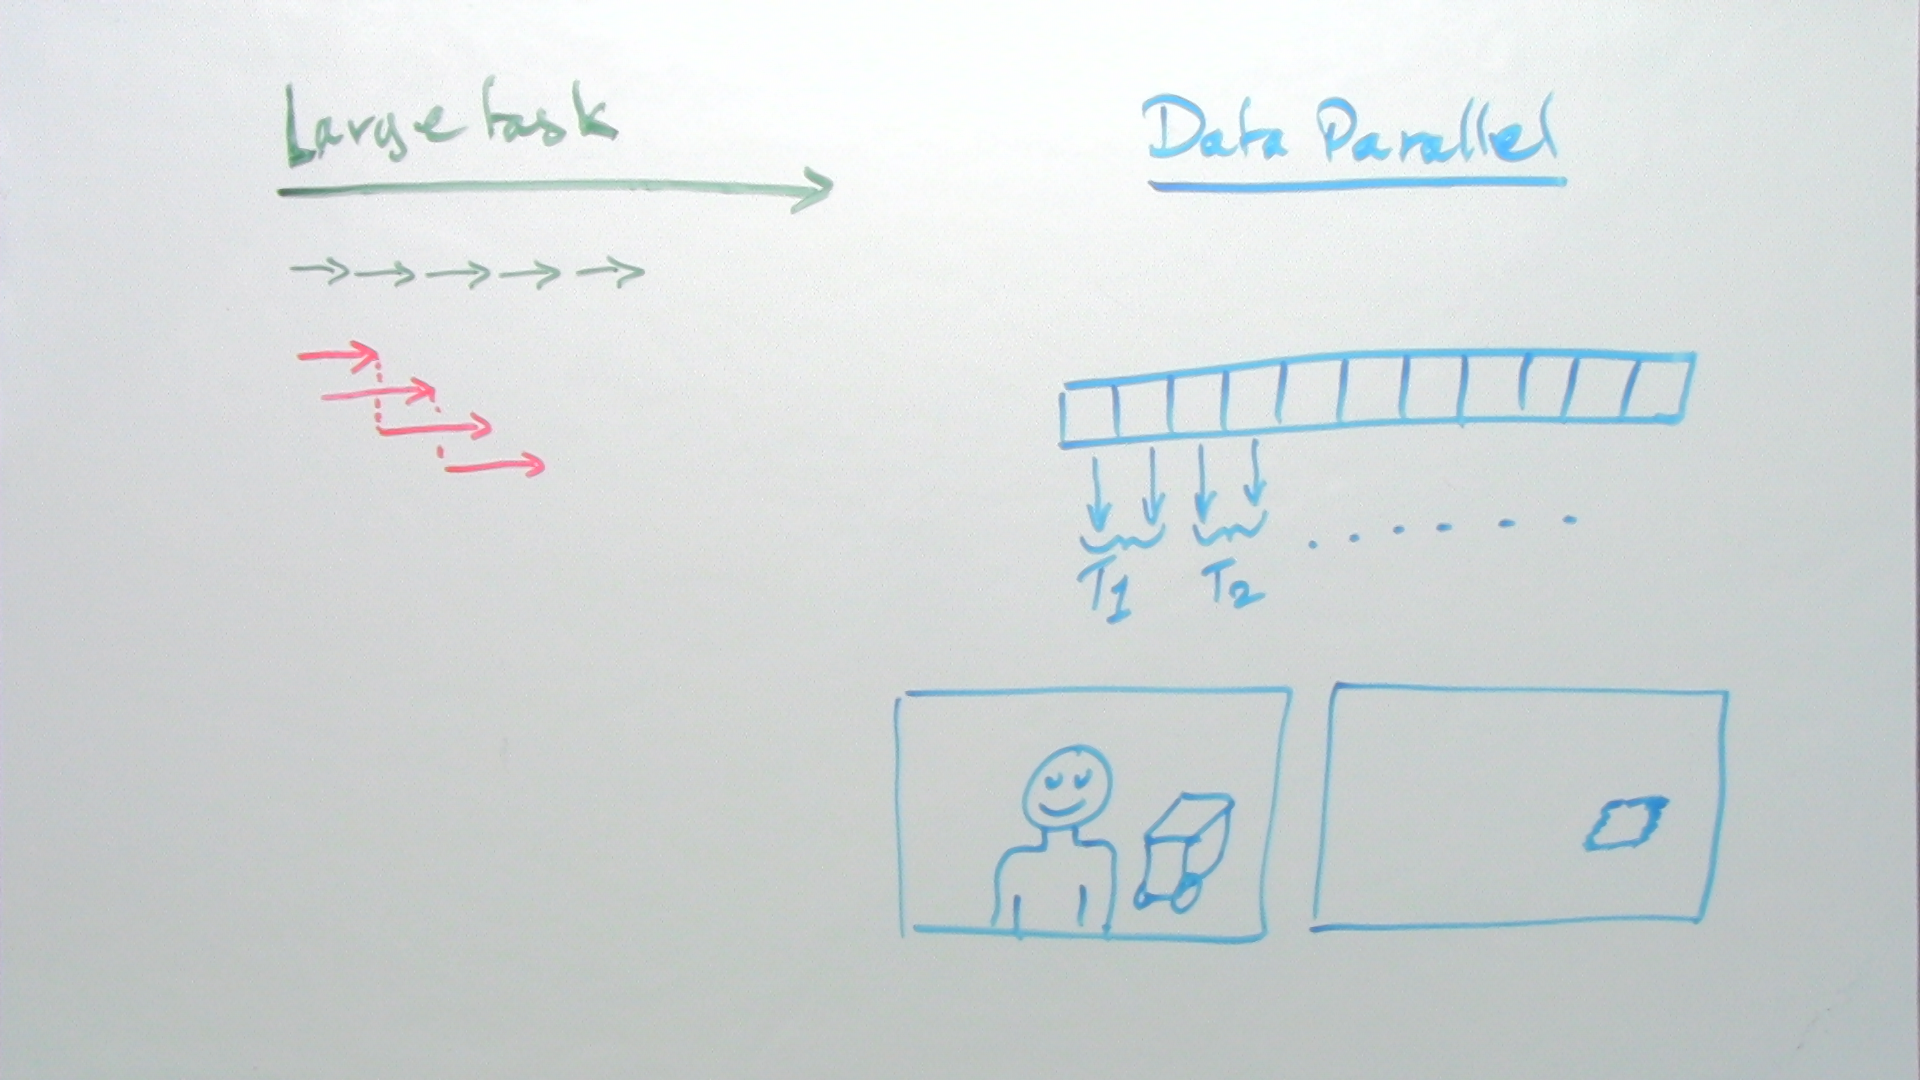 Large task
Data Parallel
T1 T2 ......